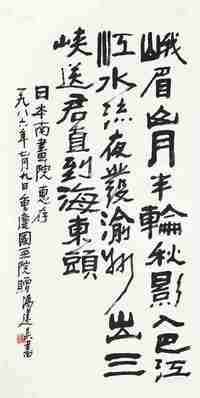 峨眉山月半輪秋影入巴江
江水流夜發渝州出三
峽送君直到海東頭
日本南畫院惠存
一九八六年七月九日重慶國画院贈馮建吳書